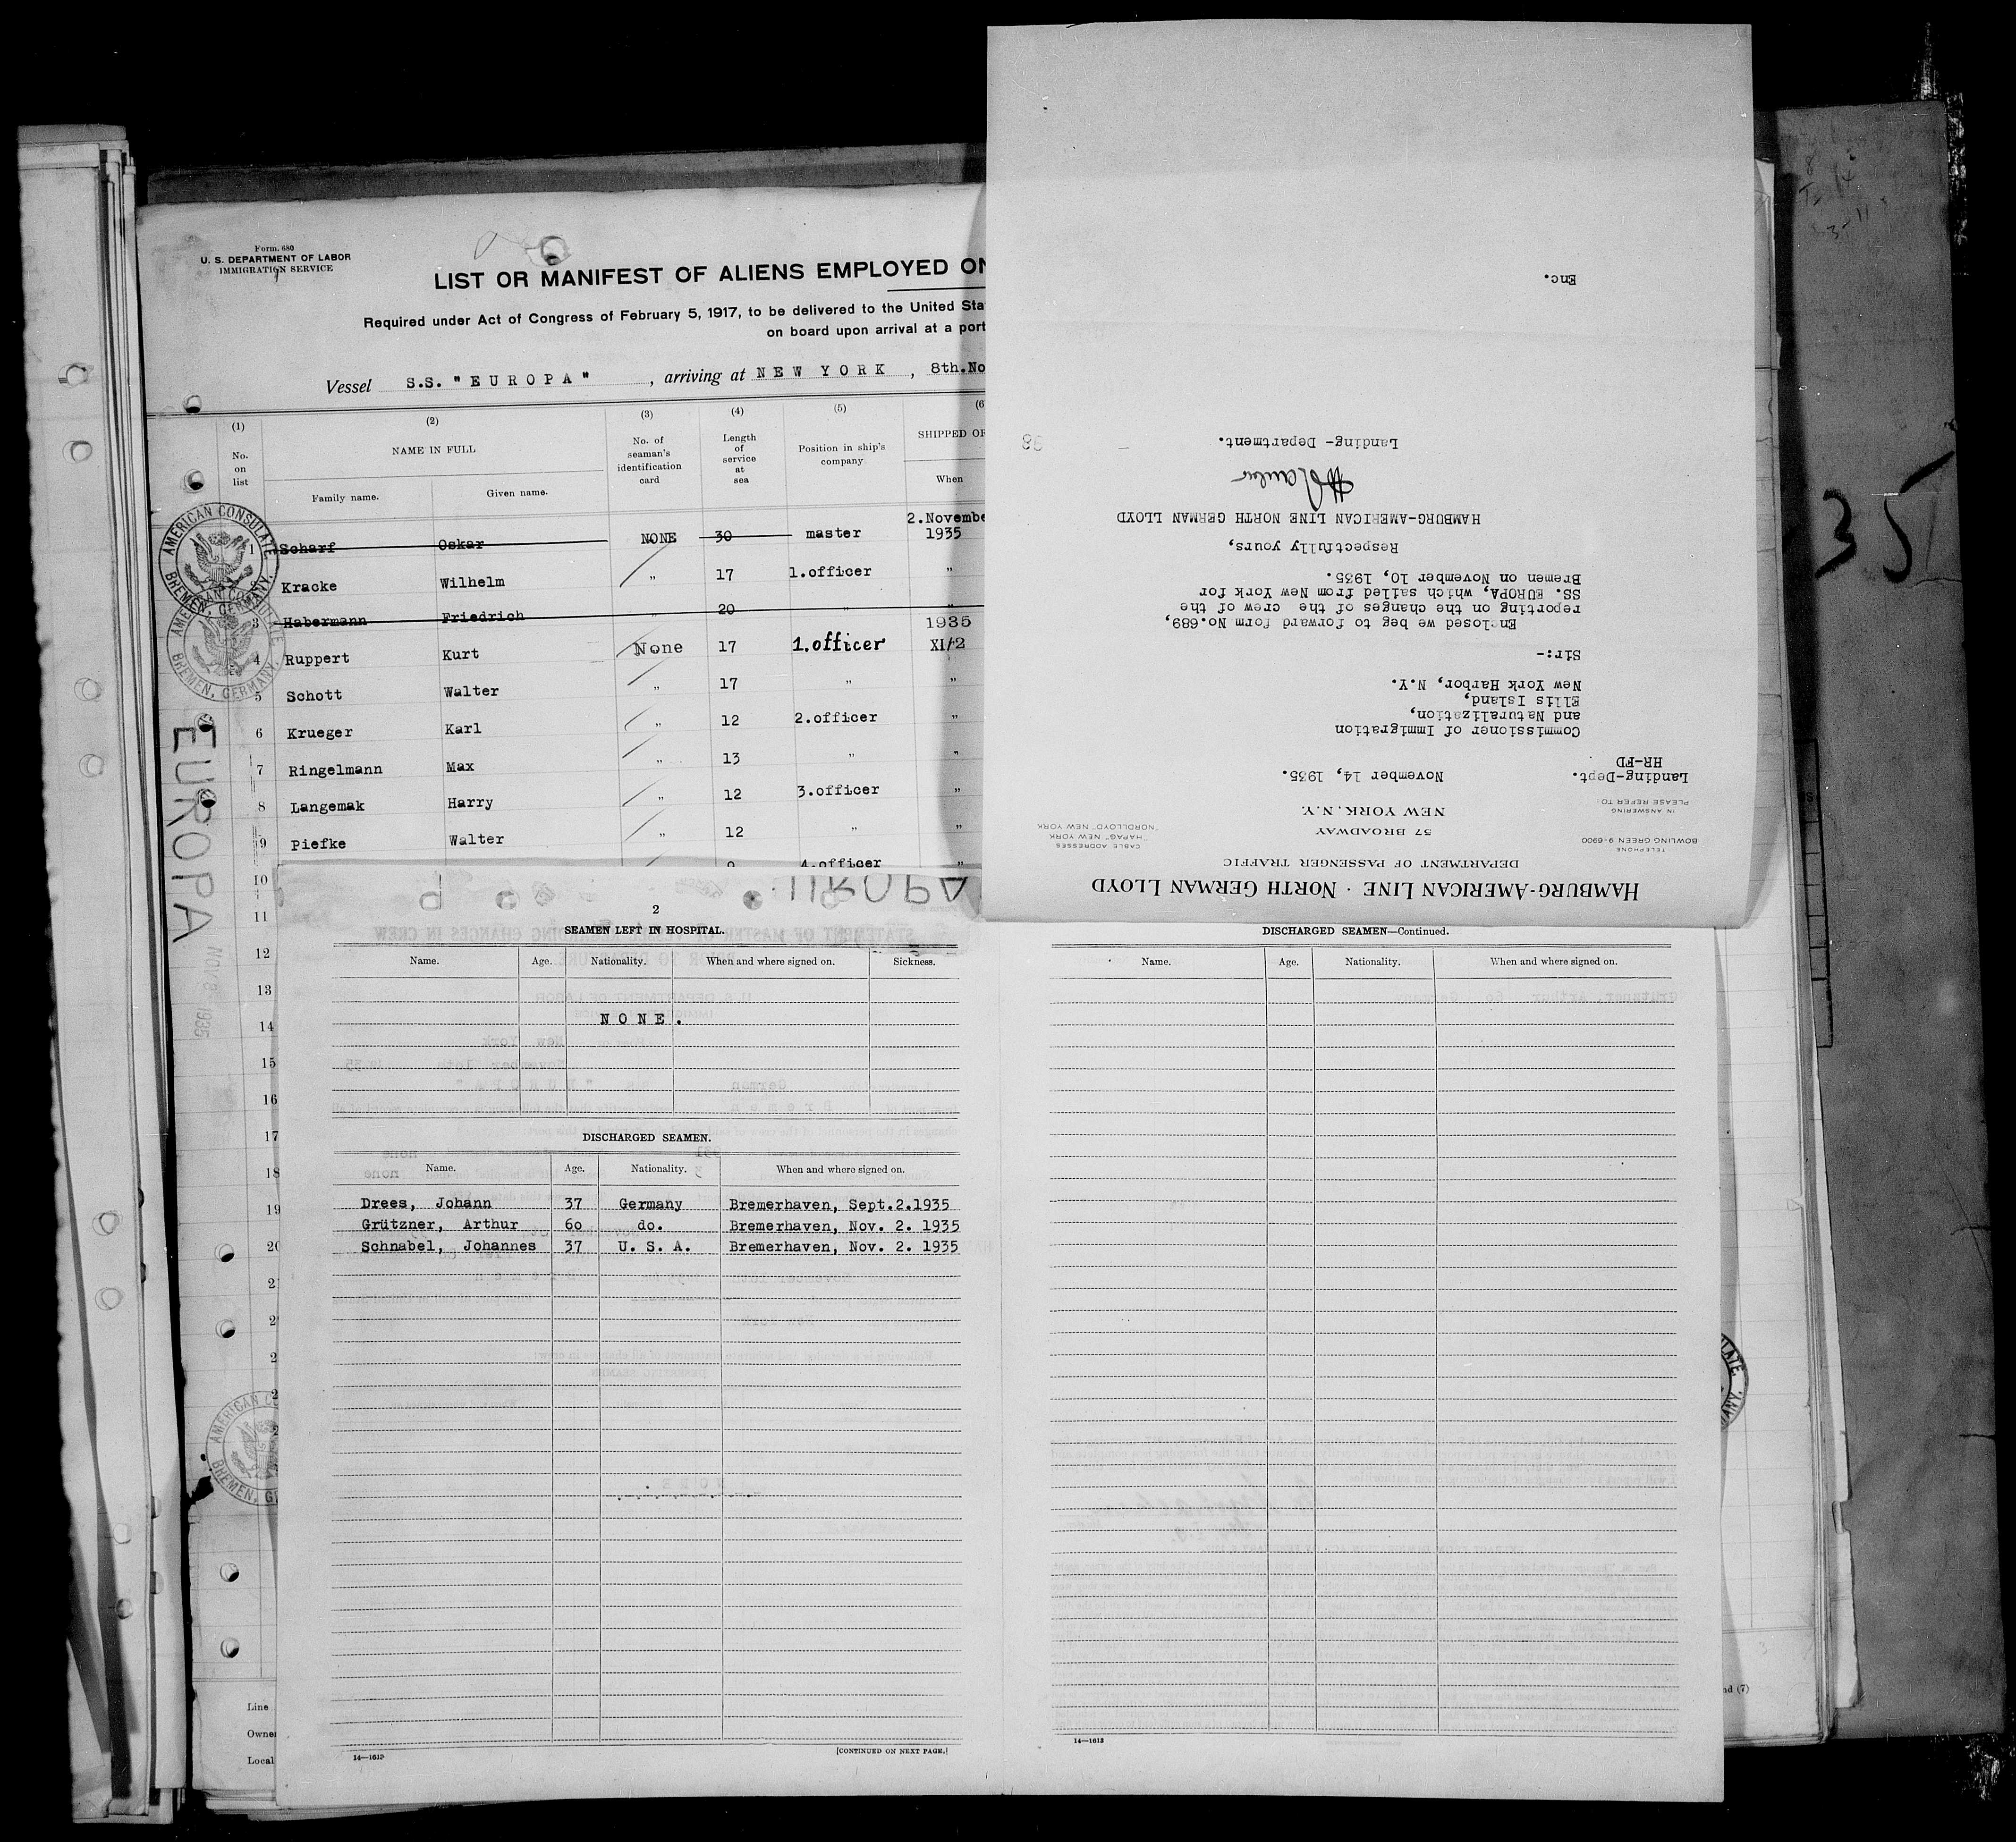 Form. 680
U. S. DEPARTMENT OF LABOR
IMMIGRATION SERVICE
LIST OR MANIFEST OF ALIENS EMPLOYED ON
Required under Act of Congress of February 5, 1917, to be delivered to the United Sta
on board upon arrival at a port
Vessel S.S. "EUROPA", arriving at NEW YORK, 8th.No
(1) (2) (3) (4) (5) (6
No. on list
NAME IN FULL
Family name. Given name.
No. of seaman's identification card
Length of service at sea
Position in ship's company
SHIPPED OR
When
2.Novembe
1 Scharf Oskar NONE 30 master 1935
Kracke Wilhelm " 17 1.officer "
3 Habermann Friedrich " 20 " "
1935
4 Ruppert Kurt None 17 1.officer XI/2
5 Schott Walter " 17 " "
6 Krueger Karl " 12 2.officer "
7 Ringelmann Max " 13 " "
8 Langemak Harry " 12 3.officer "
9 Piefke Walter " 12 " "
10 9 4.officer "
11
12
13
14
15
16
17
18
19
20
AMERICAN CONSULATE
BREMEN, GERMANY.
AMERICAN CONSULATE
BREMEN, GERMANY.
EUROPA
NOV 8 1935
AMERICAN CO
BREMEN, GE
Line
Owner
Local
2
SEAMEN LEFT IN HOSPITAL.
Name. Age. Nationality. When and where signed on. Sickness.
NONE.
DISCHARGED SEAMEN.
Name. Age. Nationality. When and where signed on.
Drees, Johann 37 Germany Bremerhaven, Sept.2.1935
Grützner, Arthur 60 do. Bremerhaven, Nov. 2. 1935
Schnabel, Johannes 37 U. S. A. Bremerhaven, Nov. 2. 1935
14—1613
[CONTINUED ON NEXT PAGE.]
DISCHARGED SEAMEN—Continued.
Name. Age. Nationality. When and where signed on.
14—1613
HAMBURG-AMERICAN LINE · NORTH GERMAN LLOYD
DEPARTMENT OF PASSENGER TRAFFIC
57 BROADWAY
NEW YORK, N.Y.
TELEPHONE
BOWLING GREEN 9-6900
CABLE ADDRESSES
"HAPAG" NEW YORK
"NORDLLOYD" NEW YORK
IN ANSWERING
PLEASE REFER TO:
Landing-Dept.
HR-FD
November 14, 1935.
Commissioner of Immigration
and Naturalization,
Ellis Island,
New York Harbor, N.Y.
Sir:-
Enclosed we beg to forward form No.689,
reporting on the changes of the crew of the
SS. EUROPA, which sailed from New York for
Bremen on November 10, 1935.
Respectfully yours,
HAMBURG-AMERICAN LINE NORTH GERMAN LLOYD
Landing- Department.
98
Enc.
35
nd (7)